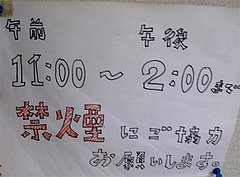 午前 午後
11:00～2:00まで
禁煙にご協力
お願いします。